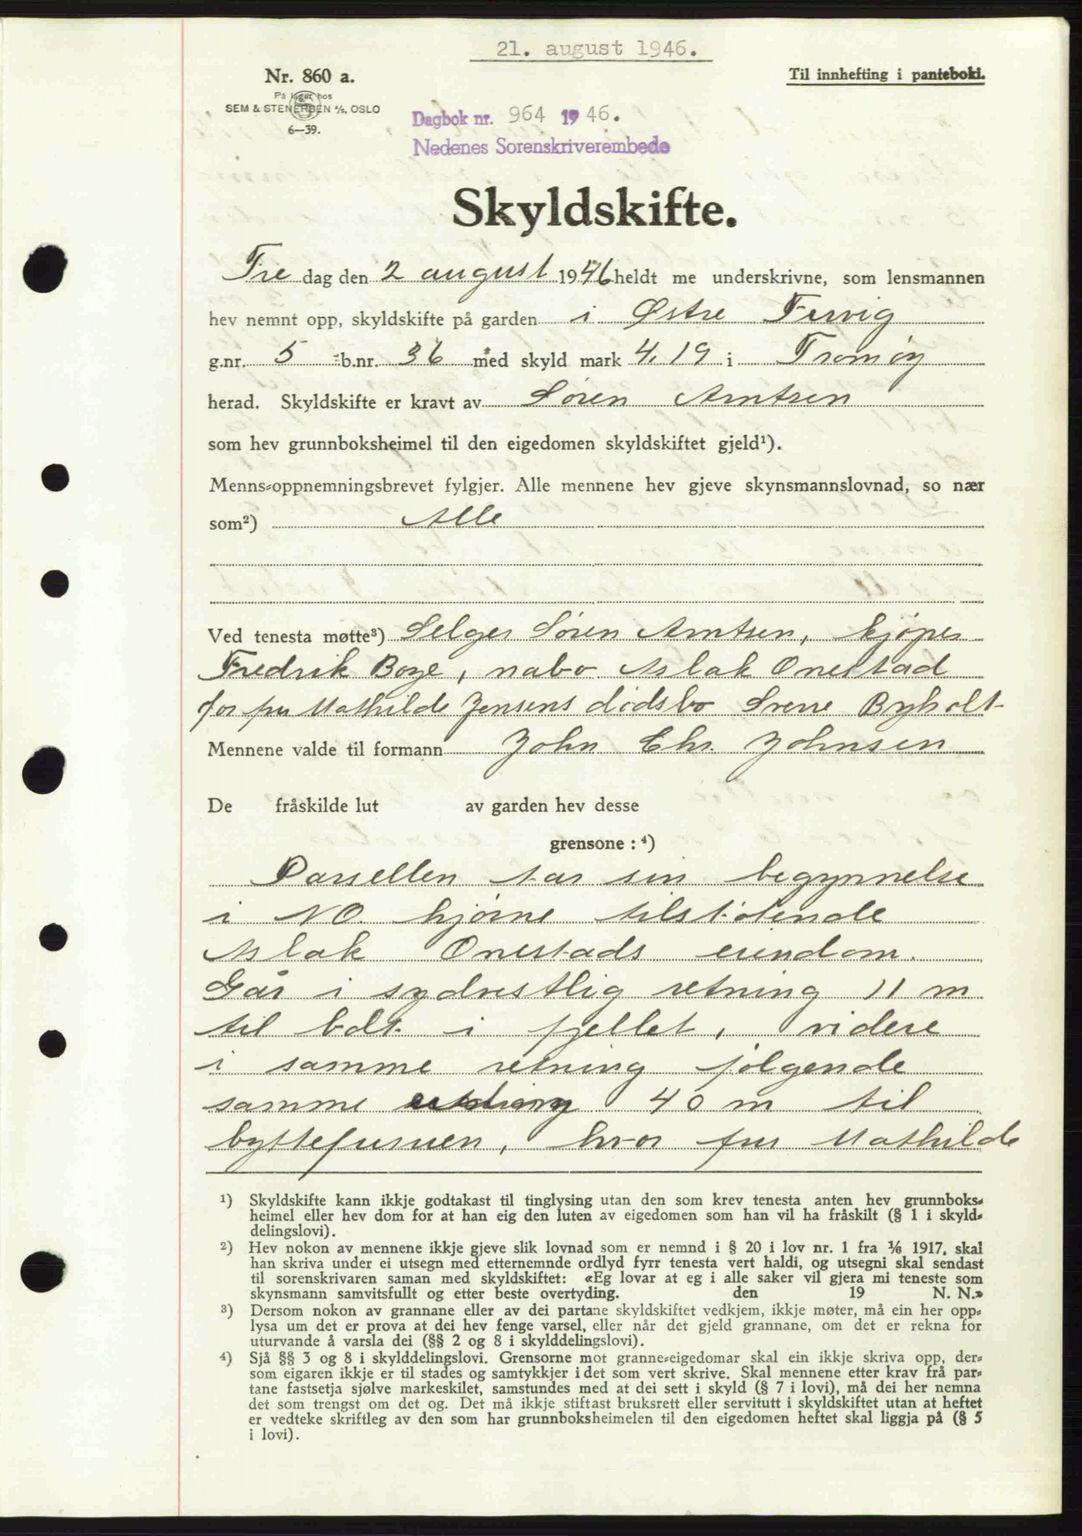 21. august 1946.
Nr. 860 a.
Til innhefting i pantebok.
På lager hos
SEM & STENERSEN A/S, OSLO
6—39.
Dagbok nr. 964 1946.
Nedenes Sorenskriverembede
Skyldskifte.
Fre dag den 2 august 1946 heldt me underskrivne, som lensmannen
hev nemnt opp, skyldskifte på garden i Østre Furvig
g.nr. 5 b.nr. 36 med skyld mark 4,19 i Tromøy
herad. Skyldskifte er kravt av Søren Arntsen
som hev grunnboksheimel til den eigedomen skyldskiftet gjeld¹).
Menns-oppnemningsbrevet fylgjer. Alle mennene hev gjeve skynsmannslovnad, so nær
som²) Alle
Ved tenesta møtte³) Selger Søren Arntsen, kjøper
Fredrik Boye, nabo Aslak Onestad
for fru Mathilde Jensens dødsbo Sverre Byholt
Mennene valde til formann John Chr. Johnsen
De fråskilde lut av garden hev desse
grensone: ⁴)
Parsellen tar sin begynnelse
i NO hjørne tilstøtende
Aslak Onestads eiendom.
Går i sydvestlig retning 11 m
til bolt i fjellet, videre
i samme retning følgende
samme 40 m til
byttefuruen, hvor fru Mathilde
¹) Skyldskifte kann ikkje godtakast til tinglysing utan den som krev tenesta anten hev grunnboks-
heimel eller hev dom for at han eig den luten av eigedomen som han vil ha fråskilt (§ 1 i skyld-
delingslovi).
²) Hev nokon av mennene ikkje gjeve slik lovnad som er nemnd i § 20 i lov nr. 1 fra 1/6 1917, skal
han skriva under ei utsegn med etternemnde ordlyd fyrr tenesta vert haldi, og utsegni skal sendast
til sorenskrivaren saman med skyldskiftet: «Eg lovar at eg i alle saker vil gjera mi teneste som
skynsmann samvitsfullt og etter beste overtyding. den 19 N. N.»
³) Dersom nokon av grannane eller av dei partane skyldskiftet vedkjem, ikkje møter, må ein her opp-
lysa um det er prova at dei hev fenge varsel, eller når det gjeld grannane, om det er rekna for
uturvande å varsla dei (§§ 2 og 8 i skylddelingslovi).
⁴) Sjå §§ 3 og 8 i skylddelingslovi. Grensorne mot granne-eigedomar skal ein ikkje skriva opp, der-
som eigaren ikkje er til stades og samtykkjer i det som vert skrive. Skal mennene etter krav frå par-
tane fastsetja sjølve markeskilet, samstundes med at dei sett i skyld (§ 7 i lovi), må dei her nemna
det som trengst om det og. Det må ikkje stiftast bruksrett eller servitutt i skyldskiftet utan at heftet
er vedteke skriftleg av den som har grunnboksheimelen til den eigedomen heftet skal liggja på (§ 5
i lovi).